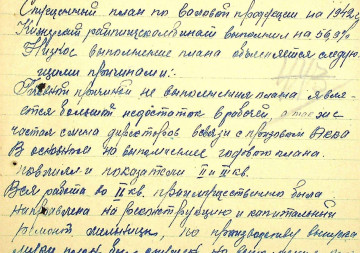 Спущенный план по валовой продукции на 1942г.
райпищекомбинат выполнил на 56,9%
Низкое выполнение плана объясняется следую-
щими причинами:-
Главной причиной не выполнения плана явля-
ется большой недостаток в рабочей, а так же
частая смена директоров в связи с призывом
В основном на выполнение годового плана.
повлияли и показатели II и III кв.
Вся работа во II кв. преимущественно была
направлена на реконструкцию и капитальный
ремонт мельницы, по производству выпуска